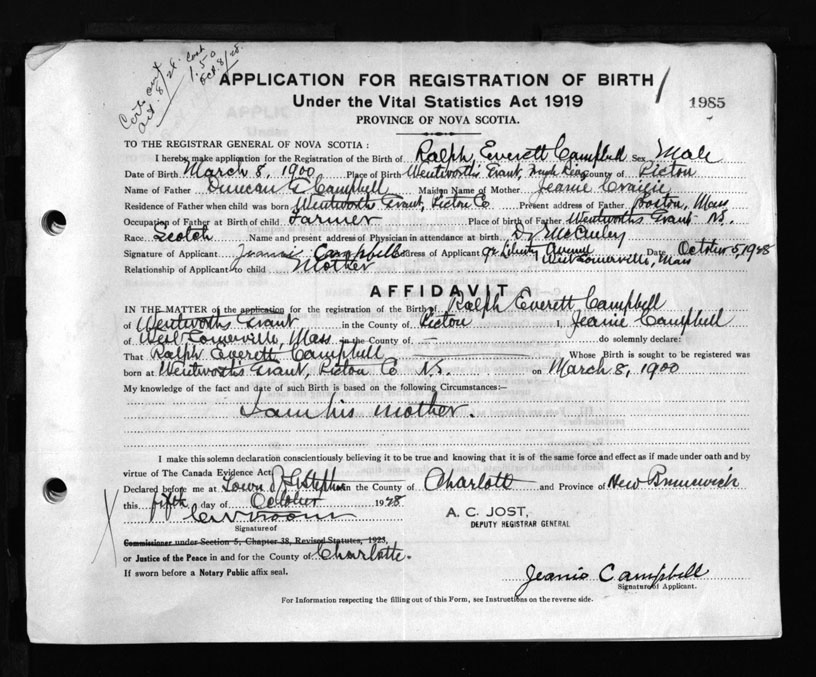 Cert out
Oct. 8/28. Cash
1.50
Oct. 8/28.
APPLICATION FOR REGISTRATION OF BIRTH
Under the Vital Statistics Act 1919
PROVINCE OF NOVA SCOTIA.
1985
TO THE REGISTRAR GENERAL OF NOVA SCOTIA :
I hereby make application for the Registration of the Birth of Ralph Everett Campbell Sex Male
Date of Birth March 8, 1900 Place of Birth Wentworth's Grant, County of Pictou
Name of Father Duncan G Campbell Maiden Name of Mother Jeanie Craigie
Residence of Father when child was born Wentworth Grant, Pictou Co Present address of Father Boston, Mass
Occupation of Father at Birth of child Farmer Place of birth of Father Wentworths Grant N.S.
Race Scotch Name and present address of Physician in attendance at birth Dr McCurley
Signature of Applicant Jeannie Campbell Address of Applicant 92 Liberty Avenue West Somerville, Mass Date October 5, 1928
Relationship of Applicant to child Mother
AFFIDAVIT
IN THE MATTER of the application for the registration of the Birth of Ralph Everett Campbell
of Wentworths Grant in the County of Pictou I, Jeanie Campbell
of West Somerville, Mass. in the County of — do solemnly declare:
That Ralph Everett Campbell Whose Birth is sought to be registered was
born at Wentworths Grant, Pictou Co N.S. on March 8, 1900
My knowledge of the fact and date of such Birth is based on the following Circumstances:—
I am his mother.
I make this solemn declaration conscientiously believing it to be true and knowing that it is of the same force and effect as if made under oath and by
virtue of The Canada Evidence Act.
Declared before me at Town of St Stephen in the County of Charlott and Province of New Brunswick
this fifth day of October 1928
Vroom
A. C. JOST,
DEPUTY REGISTRAR GENERAL
Signature of
Commissioner under Section 5, Chapter 38, Revised Statutes, 1923,
or Justice of the Peace in and for the County of Charlotte.
If sworn before a Notary Public affix seal.
Jeanie Campbell
Signature of Applicant.
For Information respecting the filling out of this Form, see Instructions on the reverse side.